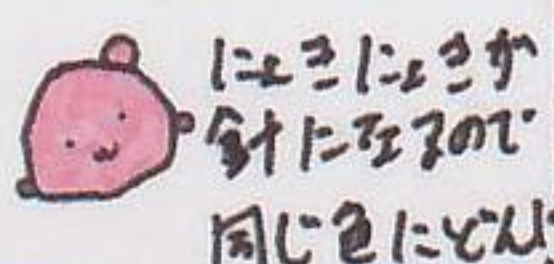 にょきにょきが
針になるので
同じ色にどん